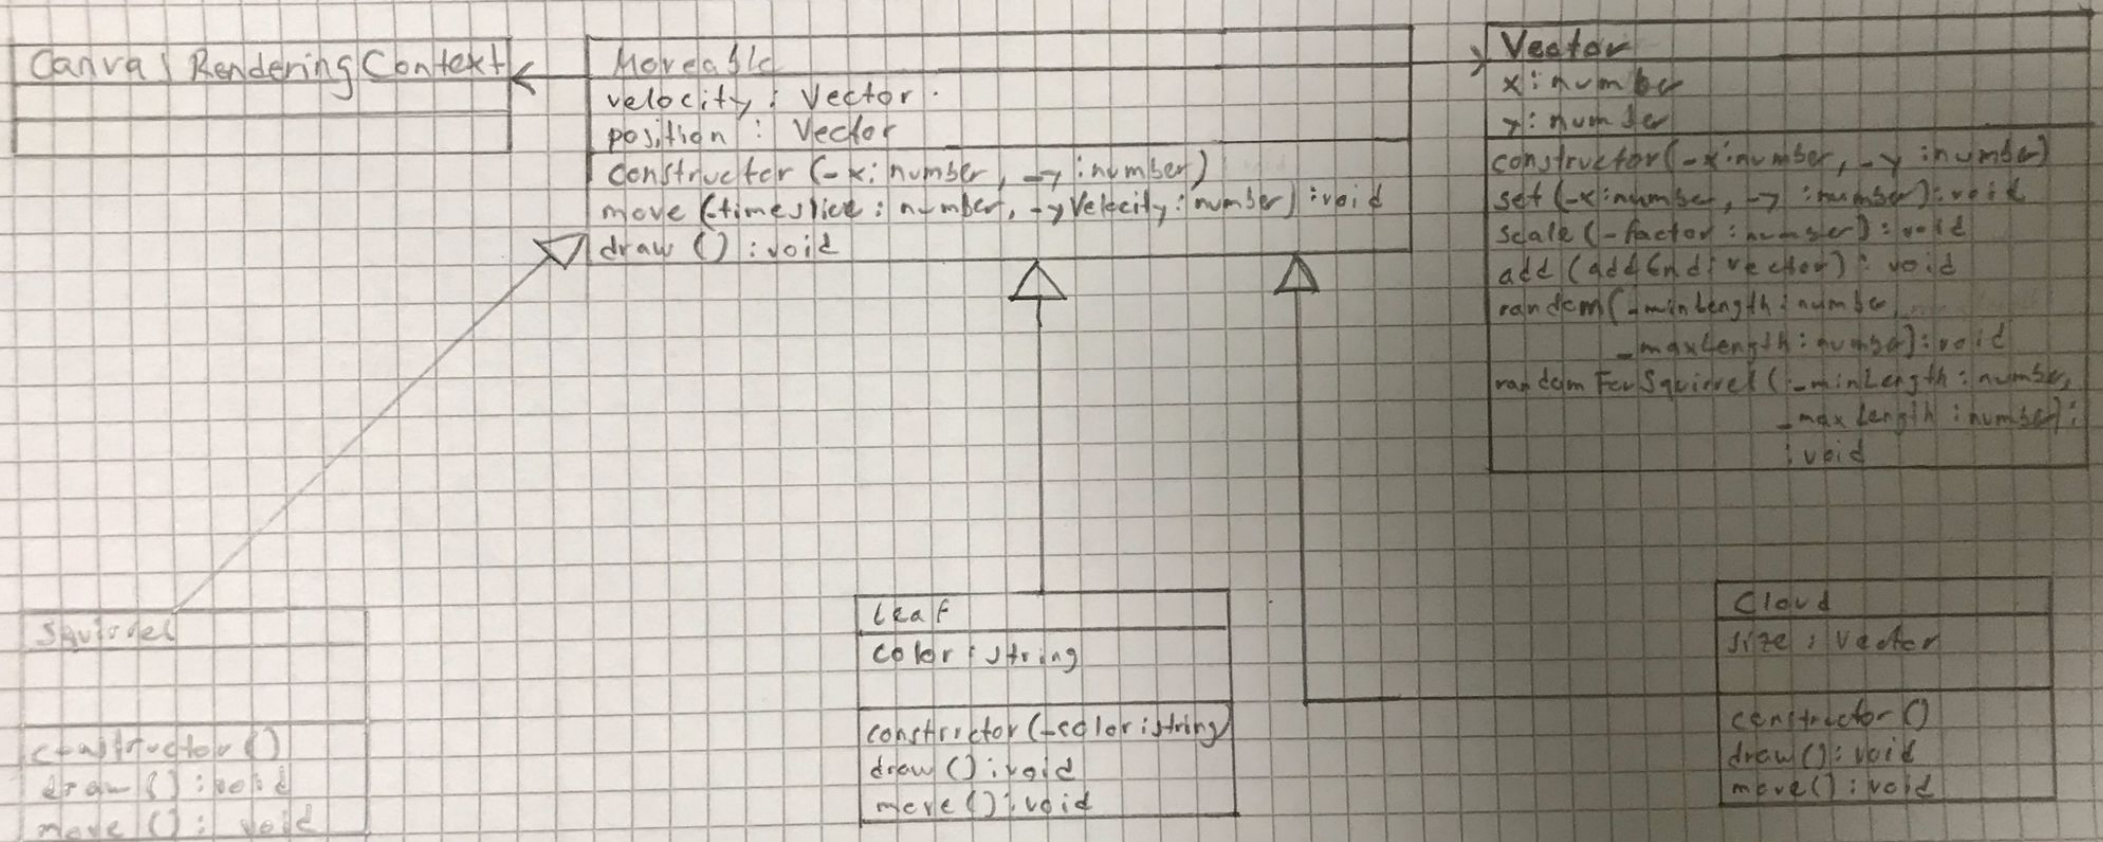 Canvas Rendering Context
Moveable
velocity : Vector
position : Vector
constructor (_x: number, _y: number)
move (_timeslice : number, _yVelocity : number) : void
draw () : void
Vector
x : number
y : number
constructor(_x:number, _y :number)
set (_x:number, _y :number) : void
scale (_factor : number) : void
add (addEnd : vector) : void
random(_minLength : number,
_maxLength : number) : void
randomForSquirrel (_minLength : number,
_maxLength : number) :
: void
Squirrel
constructor ()
draw () : void
move () : void
Leaf
color : string
constrrctor (_color : string)
draw () : void
move () : void
Cloud
size : Vector
constrrctor ()
draw () : void
move () : void